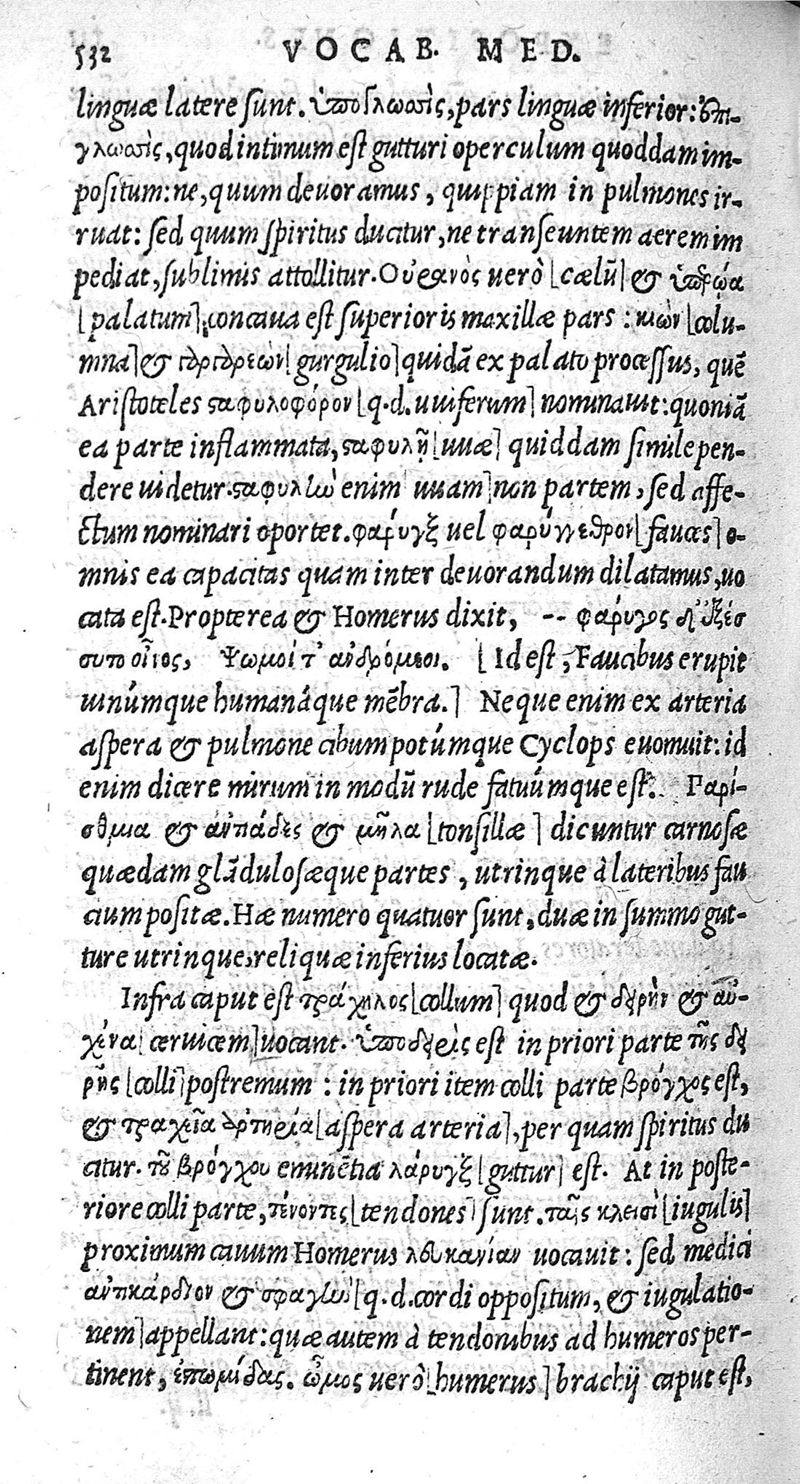 532 VOCAB. MED.
linguæ latere sunt. ὑπογλωσσὶς, pars linguæ inferior: ἐπι-
γλωσσὶς, quod intimum est gutturi operculum quoddam im-
positum: ne, quum deuoramus, quippiam in pulmones ir-
ruat: sed quum spiritus ducitur, ne transeuntem aerem im
pediat, sublimis attollitur. Οὐρανὸς uerò [cælũ] & ὑπερῴα
[palatum], concaua est superioris maxillæ pars: κιὼν [colu-
mna] & γαργαρεὼν [gurgulio] quidã ex palato processus, quẽ
Aristoteles σταφυλοφόρον [q.d. uuiferum] nominauit: quoniã
ea parte inflammata, σταφυλῇ [uuæ] quiddam simile pen-
dere uidetur. σταφυλὴν enim uuam] non partem, sed affe-
ctum nominari oportet. φαρυγξ uel φαρύγγεθρον [fauces] o-
mnis ea capacitas quam inter deuorandum dilatamus, uo
cata est. Propterea & Homerus dixit, -- φάρυγος δ' ἐξέσ
συτο οἶνος, Ψωμοί τ' ἀνδρόμεοι. [Id est, Faucibus erupit
uinúmque humanáque mẽbra.] Neque enim ex arteria
aspera & pulmone cibum potúmque Cyclops euomuit: id
enim dicere mirum in modũ rude fatuúmque est. Παρί-
σθμια & ἀντιάδες & μῆλα [tonsillæ] dicuntur carnosæ
quædam glãdulosæque partes, utrinque à lateribus fau
cium positæ. Hæ numero quatuor sunt, duæ in summo gut-
ture utrinque, reliquæ inferius locatæ.
Infra caput est τράχηλος [collum] quod & δέρην & αὐ-
χένα [ceruicem] uocant. ὑποδερὶς est in priori parte τῆς δέ
ρης [colli] postremum: in priori item colli parte βρόγχος est,
& τραχεῖα ἀρτηρία [aspera arteria], per quam spiritus du
citur. τοῦ βρόγχου eminẽtia λάρυγξ [guttur] est. At in poste-
riore colli parte, τένοντες [tendones] sunt. ταῖς κλεισὶ [iugulis]
proximum cauum Homerus λευκανίαν uocauit: sed medici
ἀντικάρδιον & σφαγὴν [q.d. cordi oppositum, & iugulatio-
nem] appellant: quæ autem à tendonibus ad humeros per-
tinent, ἐπωμίδας. ὦμος uerò [humerus] brachij caput est,